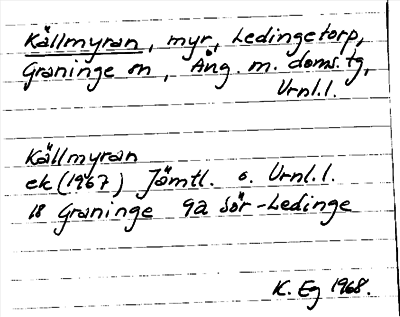 Källmyran, myr, Ledingetorp,
Graninge sn, Ång. m. doms. tg,
Vrnl.l.
Källmyran
ek (1967) Jämtl. o. Vrnl.l.
18 Graninge 9a Sör-Ledinge
K. Eg 1968.